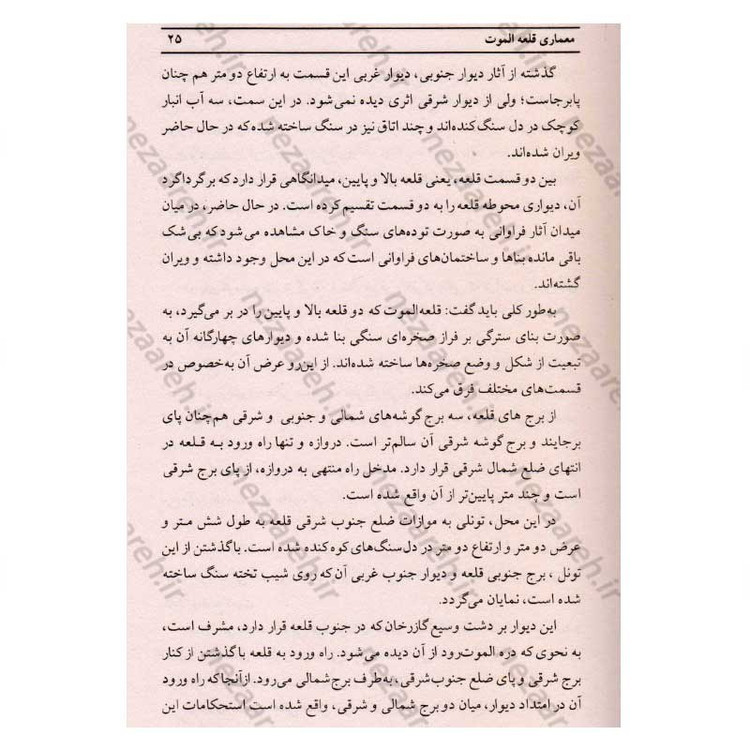 معماری قلعه الموت ۲۵
گذشته از آثار دیوار جنوبی، دیوار غربی این قسمت به ارتفاع دو متر هم چنان
پابرجاست؛ ولی از دیوار شرقی اثری دیده نمی‌شود. در این سمت، سه آب انبار
کوچک در دل سنگ کنده‌اند و چند اتاق نیز در سنگ ساخته شده که در حال حاضر
ویران شده‌اند.
بین دو قسمت قلعه، یعنی قلعه بالا و پایین، میدانگاهی قرار دارد که بر گرداگرد
آن، دیواری محوطه قلعه را به دو قسمت تقسیم کرده است. در حال حاضر، در میان
میدان آثار فراوانی به صورت توده‌های سنگ و خاک مشاهده می‌شود که بی‌شک
باقی مانده بناها و ساختمان‌های فراوانی است که در این محل وجود داشته و ویران
گشته‌اند.
به‌طور کلی باید گفت: قلعه الموت که دو قلعه بالا و پایین را در بر می‌گیرد، به
صورت بنای سترگی بر فراز صخره‌ای سنگی بنا شده و دیوارهای چهارگانه آن به
تبعیت از شکل و وضع صخره‌ها ساخته شده‌اند. از این‌رو عرض آن به‌خصوص در
قسمت‌های مختلف فرق می‌کند.
از برج های قلعه، سه برج گوشه‌های شمالی و جنوبی و شرقی هم‌چنان پای
برجایند و برج گوشه شرقی آن سالم‌تر است. دروازه و تنها راه ورود به قلعه در
انتهای ضلع شمال شرقی قرار دارد. مدخل راه منتهی به دروازه، از پای برج شرقی
است و چند متر پایین‌تر از آن واقع شده است.
در این محل، تونلی به موازات ضلع جنوب شرقی قلعه به طول شش متر و
عرض دو متر و ارتفاع دو متر در دل سنگ‌های کوه کنده شده است. با گذشتن از این
تونل ، برج جنوبی قلعه و دیوار جنوب غربی آن که روی شیب تخته سنگ ساخته
شده است، نمایان می‌گردد.
این دیوار بر دشت وسیع گازرخان که در جنوب قلعه قرار دارد، مشرف است،
به نحوی که دره الموت‌رود از آن دیده می‌شود. راه ورود به قلعه با گذشتن از کنار
برج شرقی و پای ضلع جنوب‌شرقی، به‌طرف برج شمالی می‌رود. ازآنجاکه راه ورود
آن در امتداد دیوار، میان دو برج شمالی و شرقی، واقع شده است استحکامات این
nezaareh.ir